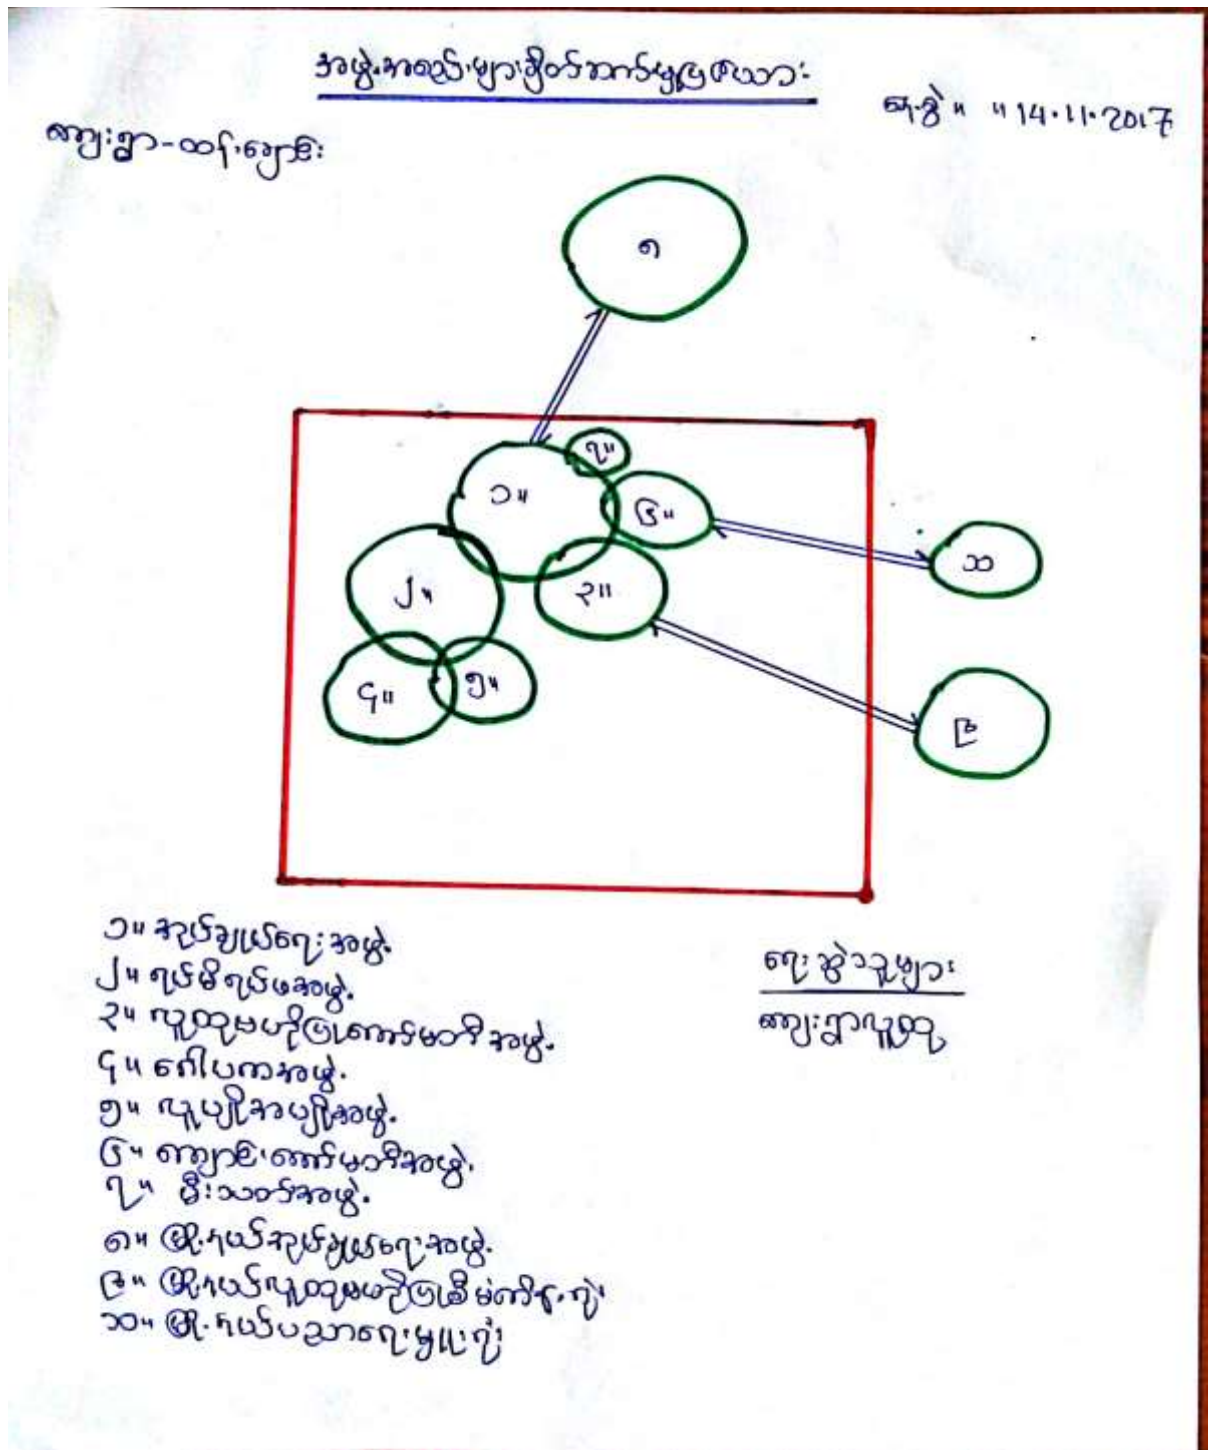 အဖွဲ့အစည်းများချိတ်ဆက်မှုပြဇယား
နေ့စွဲ။ ။14.11.2017
ကျေးရွာ-ထန်းချောင်း
၈
၇။
၁။
၆။
၁၀
၂။
၃။
၄။
၅။
၉
၁။ အုပ်ချုပ်ရေးအဖွဲ့
၂။ ရပ်မိရပ်ဖအဖွဲ့
၃။ လူထုဗဟိုပြုကော်မတီအဖွဲ့
၄။ ဂေါပကအဖွဲ့
၅။ လူပျိုအပျိုအဖွဲ့
၆။ ကျောင်းကော်မတီအဖွဲ့
၇။ မီးသတ်အဖွဲ့
၈။ မြို့နယ်အုပ်ချုပ်ရေးအဖွဲ့
၉။ မြို့နယ်လူထုဗဟိုပြုစီမံကိန်းရုံး
၁၀။ မြို့နယ်ပညာရေးမှူးရုံး
ရေးဆွဲသူများ
ကျေးရွာလူထု